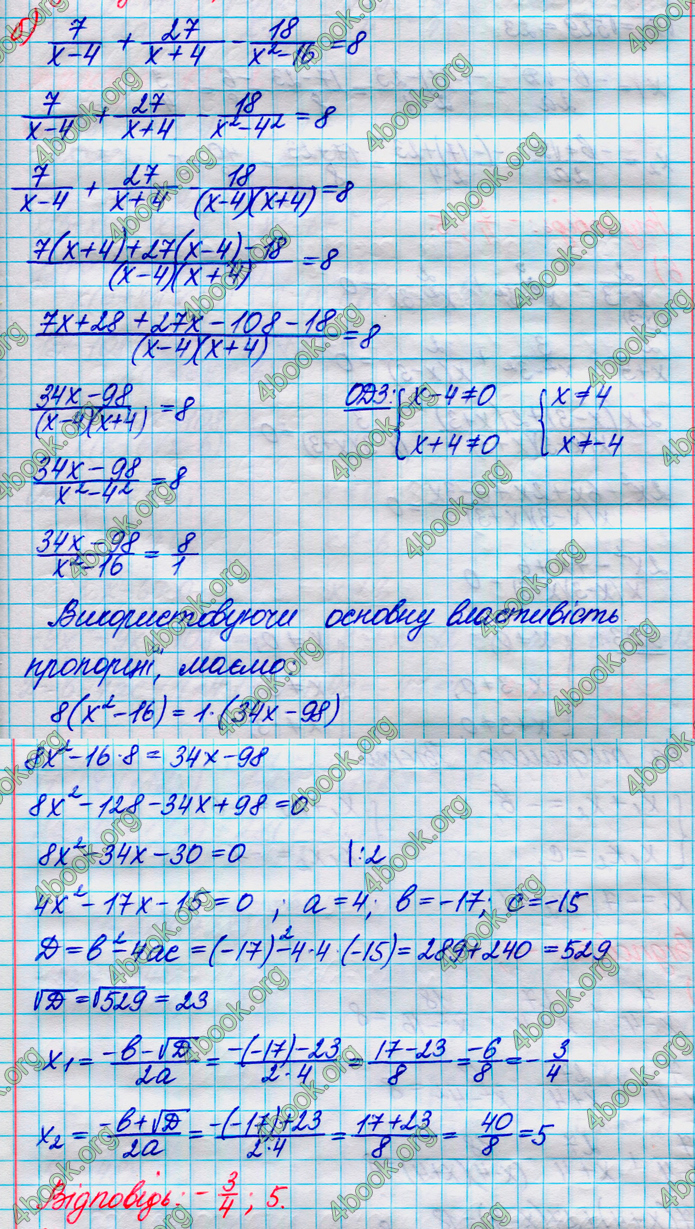 7/(x-4) + 27/(x+4) - 18/(x²-16) = 8
7/(x-4) + 27/(x+4) - 18/(x²-4²) = 8
7/(x-4) + 27/(x+4) - 18/((x-4)(x+4)) = 8
(7(x+4)+27(x-4)-18)/((x-4)(x+4)) = 8
(7x+28+27x-108-18)/((x-4)(x+4)) = 8
(34x-98)/((x-4)(x+4)) = 8
ОДЗ: { x-4≠0 { x≠4
x+4≠0 x≠-4
(34x-98)/(x²-4²) = 8
(34x-98)/(x²-16) = 8/1
Використовуючи основну властивість
пропорції, маємо:
8(x²-16) = 1·(34x-98)
8x²-16·8 = 34x-98
8x²-128-34x+98=0
8x²-34x-30=0 |:2
4x²-17x-15=0 ; a=4; b=-17; c=-15
D=b²-4ac=(-17)²-4·4·(-15)=289+240=529
√D=√529=23
x₁ = (-b-√D)/2a = (-(-17)-23)/(2·4) = (17-23)/8 = -6/8 = -3/4
x₂ = (-b+√D)/2a = (-(-17)+23)/(2·4) = (17+23)/8 = 40/8 = 5
Відповідь: -3/4; 5.
4book.org